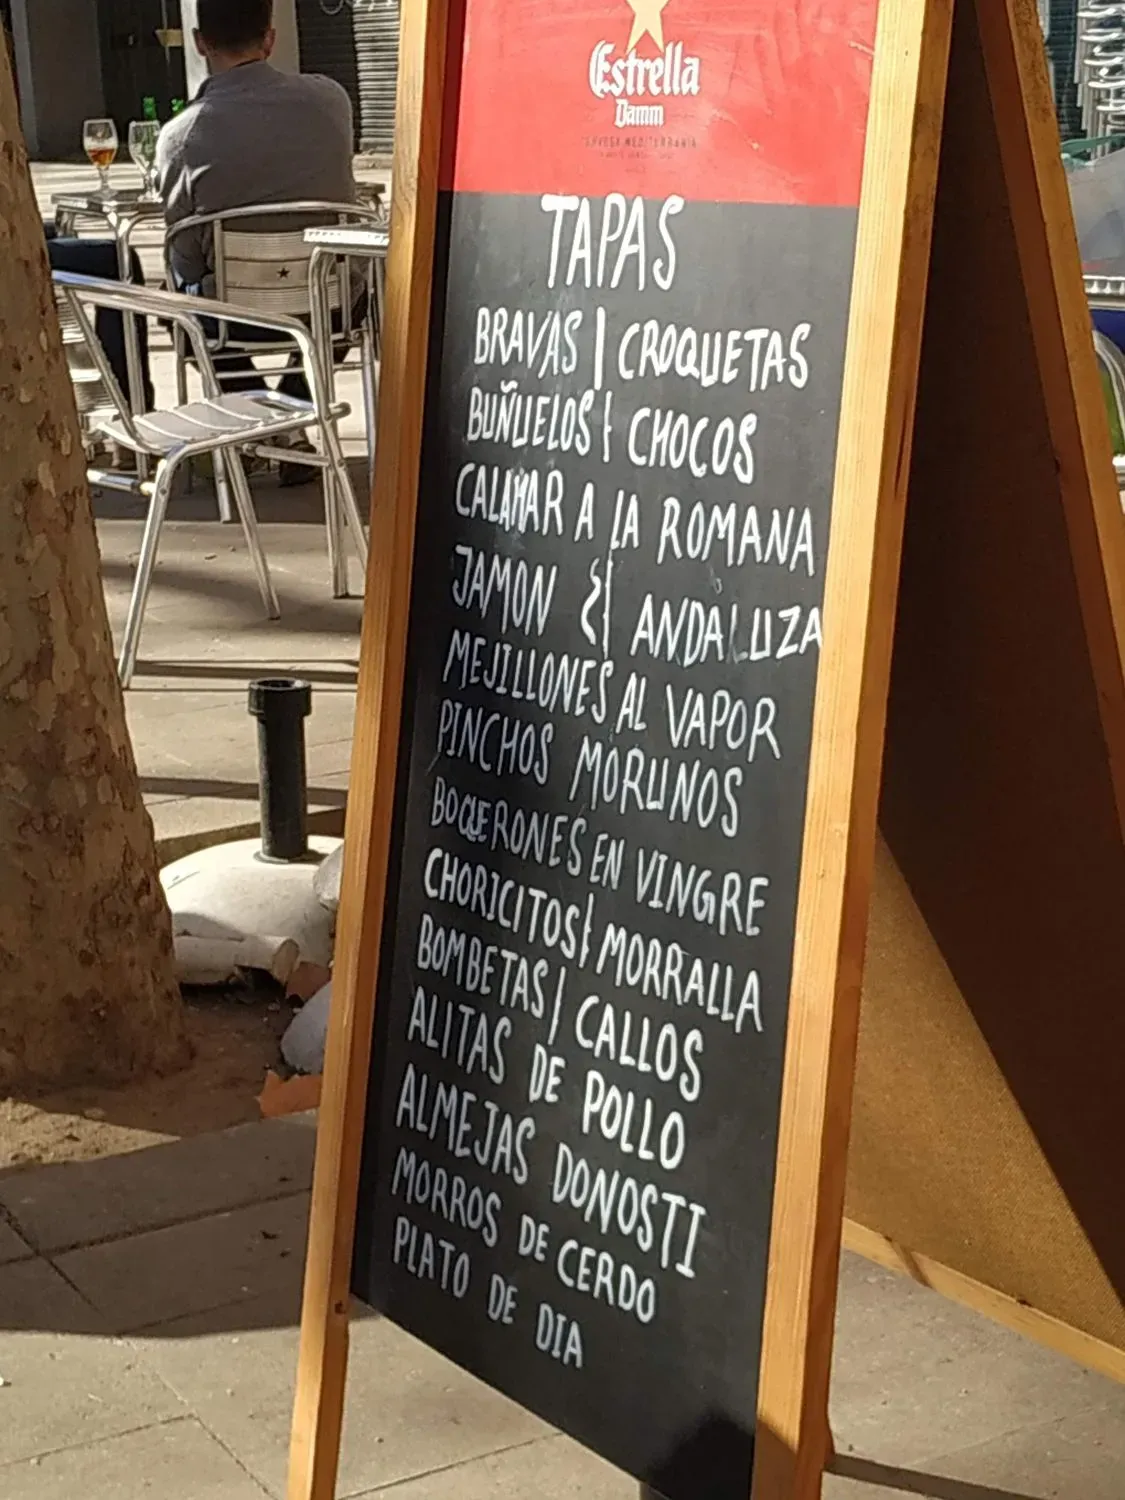 Estrella
Damm
CERVEZA MEDITERRÁNEA
TAPAS
BRAVAS | CROQUETAS
BUÑUELOS | CHOCOS
CALAMAR A LA ROMANA
JAMON | ANDALUZA
MEJILLONES AL VAPOR
PINCHOS MORUNOS
BOQUERONES EN VINGRE
CHORICITOS | MORRALLA
BOMBETAS | CALLOS
ALITAS DE POLLO
ALMEJAS DONOSTI
MORROS DE CERDO
PLATO DE DIA